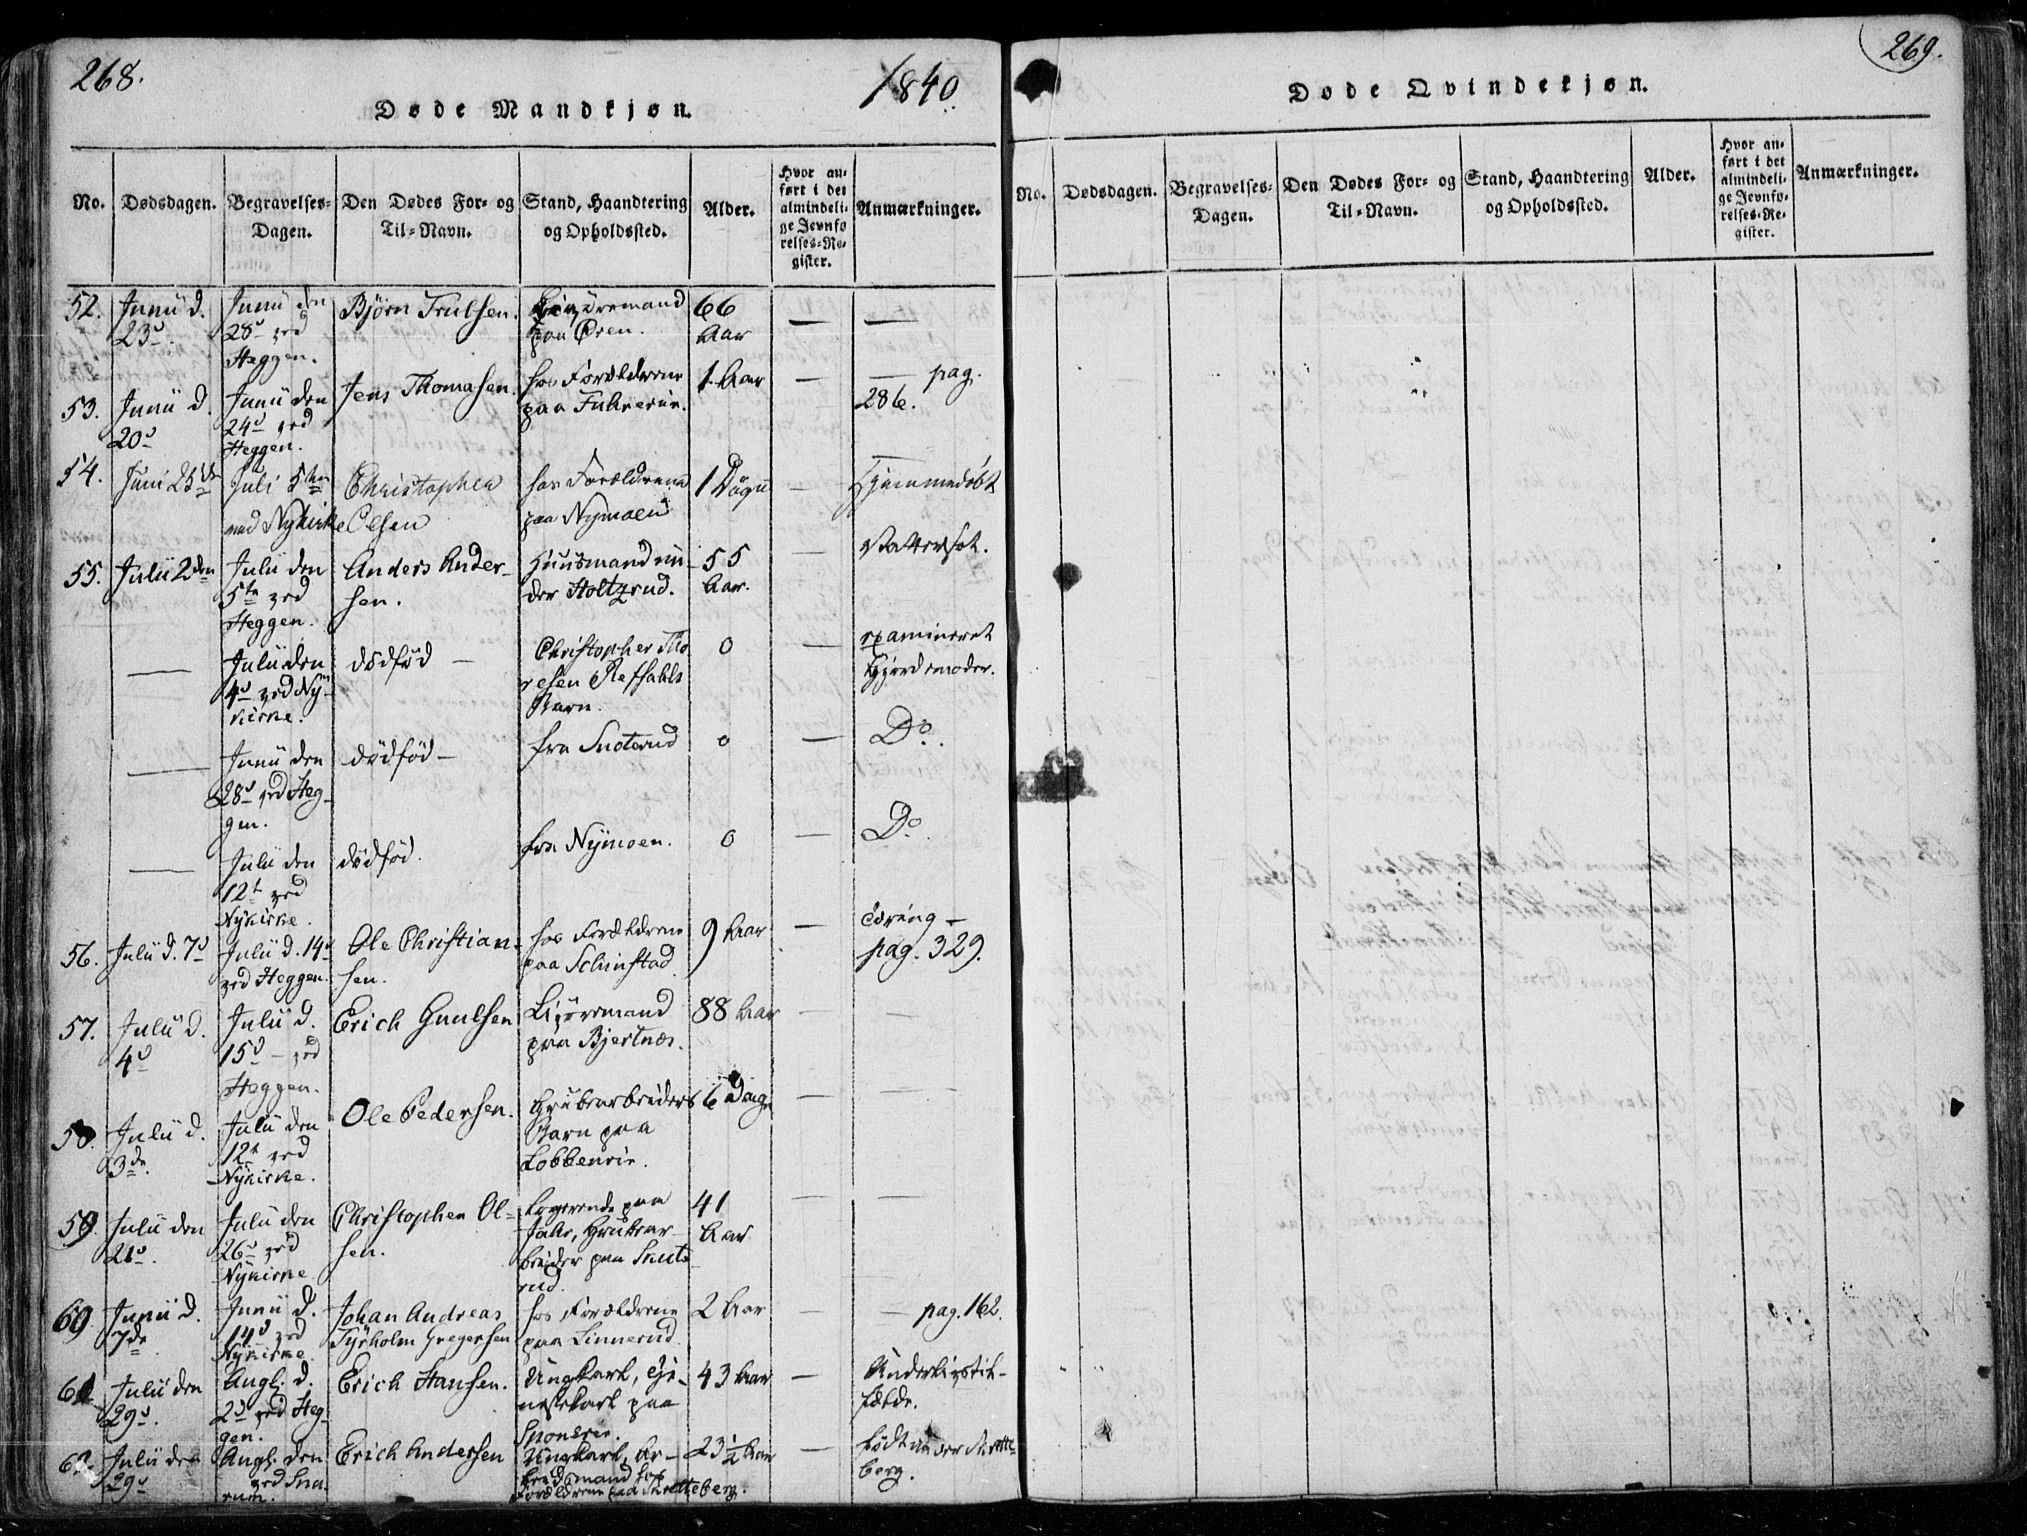 268.
1840.
Døde Mandkjøn.
No.
Dødsdagen.
Begravelses-
Dagen.
Den Dødes For- og
Til-Navn.
Stand, Haandtering
og Opholdssted.
Alder.
Hvor an-
ført i det
almindeli-
ge Jevnfø
relses-Re-
gister.
Anmærkninger.
52.
Junii d.
23d
Junii den
28d ved
Heggen.
Bjørn Trulsen.
paa Øren.
66
Aar
53.
Junii d.
20d
Junii den
24d ved
Heggen.
Jens Thomasen.
hos Forældrene
paa
1 Aar
pag.
286.
54.
Juni 25de
Juli 5ten
ved Nykirke
Christopher
Olsen
hos Forældrene
paa Nymoen
1 Døgn
Hjemmedøbt
55.
Julii 2den
Julii den
5te ved
Heggen.
Anders Ander-
sen.
Huusmand un-
der Holtzrud.
55
Aar.
Vattersot.
Julii den
4d ved Ny-
kirke.
dødfød
Christopher Tho
resen
Barn.
0
examineret
Gjordemoder.
Junii den
28d ved Heg-
gen.
dødfød
fra Snoterud
0
Do.
Julii den
12te ved
Nykirke.
dødfød.
fra Nymoen.
0
Do.
56.
Julii d. 7d
Julii d. 14d
ved Heggen.
Ole Christian-
sen.
hos Forældrene
paa
9 Aar
pag. 329.
57.
Julii d.
4d
Julii d.
15d ved
Heggen.
Erich Guulsen
paa Bjertnæs.
88 Aar
58.
Julii d.
3de.
Julii den
12te ved
Nykirke.
Ole Pedersen.
Grubearbeiders
Barn paa
6 Dage
59.
Julii den
21d.
Julii den
26d ved
Nykirke
Christopher Ol-
sen.
Logerende paa
Grubear-
beider paa Snute
rud.
41
Aar
60
Junii d.
7de
Junii d.
14d ved
Nykirke.
Johan Andreas
Tyrholm Gregersen
hos Forældrene
paa Linnerud
2 Aar
pag. 162.
61
Julii den
29d.
Augl. d.
2d ved Heg-
gen.
Erich Hansen.
Ungkarl, tje-
nestekarl paa
43 Aar
62.
Julii den
29d
Augl. den
ved Sna-
rum.
Erich Andersen
Ungkarl, Ar-
beidsmand hos
Forældrene paa
23 1/2 Aar
født under
berg.
269.
Døde Qvindekjøn.
No.
Dødsdagen.
Begravelses-
Dagen.
Den Dødes For- og
Til-Navn.
Stand, Haandtering
og Opholdssted.
Alder.
Hvor an-
ført i det
almindeli-
ge Jevnfø-
relses-Re-
gister.
Anmærkninger.